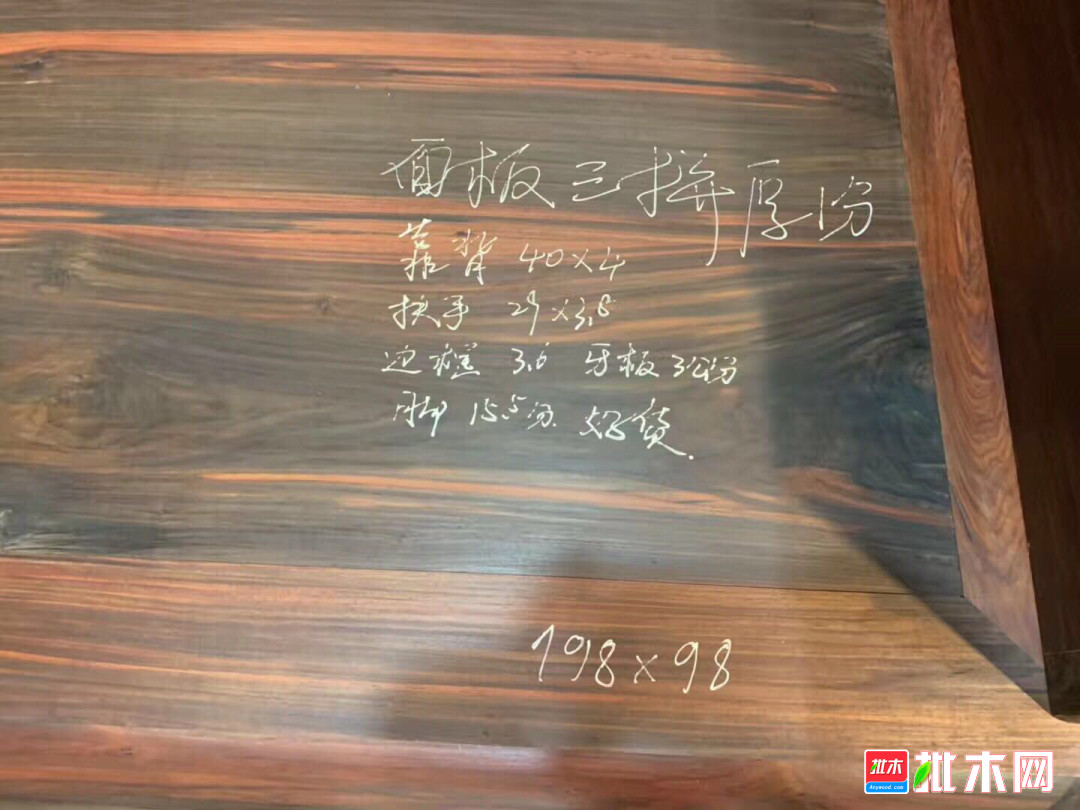 面板三拼厚份
靠背 40×4
扶手 29×3.8
边框 3.6 牙板3公分
脚 15.5分 好货.
198×98
批木
Anywood.com
批木网